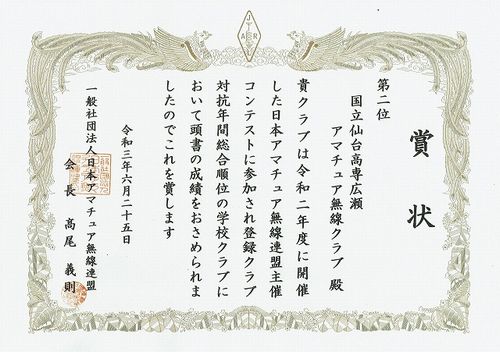 JARL
賞状
第二位
国立仙台高専広瀬
アマチュア無線クラブ 殿
貴クラブは令和二年度に開催
した日本アマチュア無線連盟主催
コンテストに参加され登録クラブ
対抗年間総合順位の学校クラブに
おいて頭書の成績をおさめられま
したのでこれを賞します
令和三年六月二十五日
一般社団法人日本アマチュア無線連盟
会長 高尾義則